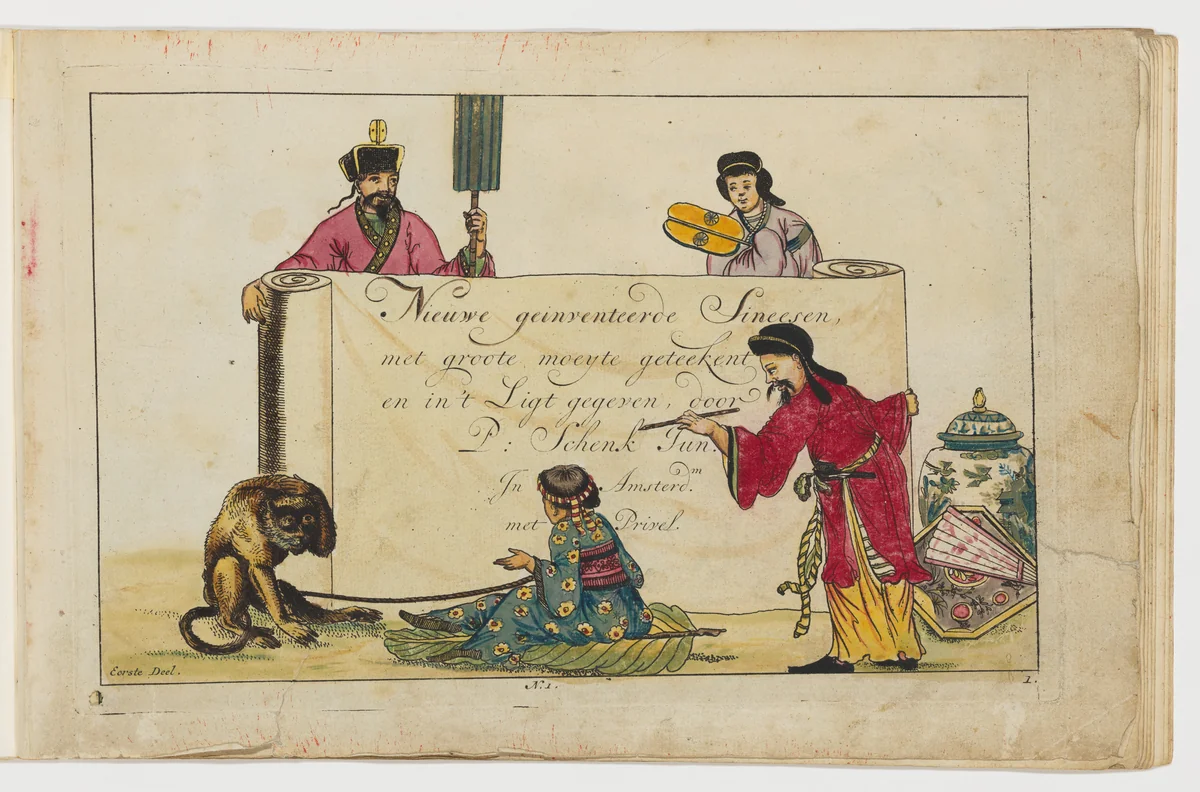 Nieuwe geinventeerde Sineesen,
met groote moeyte geteekent
en in't Ligt gegeven, door
P: Schenk Jun.
In Amsterd.m
met Privel.
Eerste Deel.
N. 1.
1.